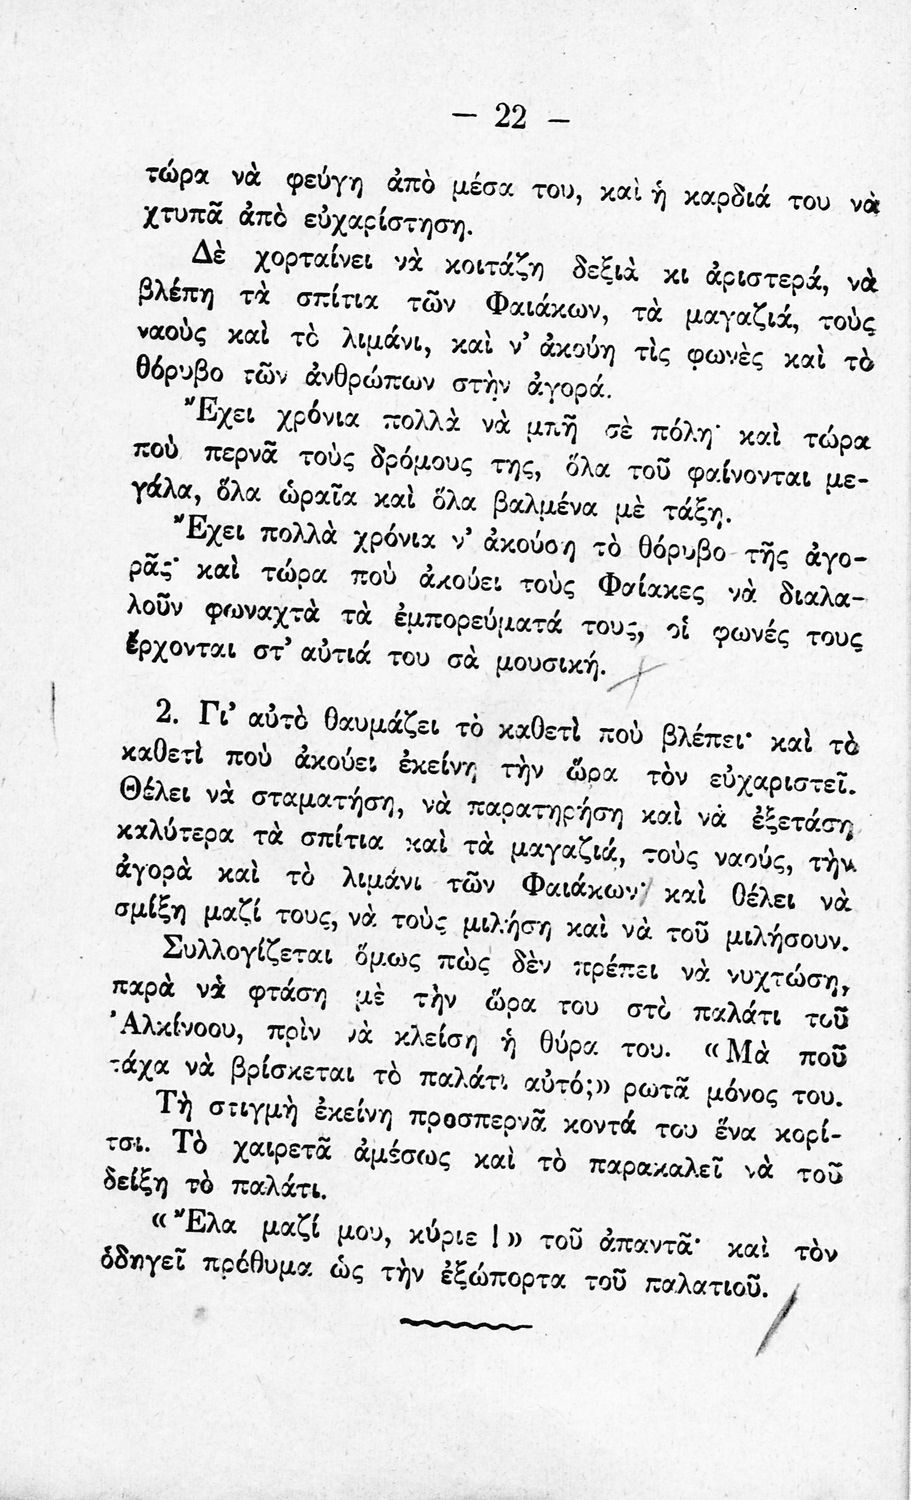 — 22 —
τώρα νὰ φεύγη ἀπὸ μέσα του, καὶ ἡ καρδιά του νὰ
χτυπᾶ ἀπὸ εὐχαρίστηση.
Δὲ χορταίνει νὰ κοιτάζη δεξιὰ κι ἀριστερά, νὰ
βλέπη τὰ σπίτια τῶν Φαιάκων, τὰ μαγαζιά, τοὺς
ναοὺς καὶ τὸ λιμάνι, καὶ ν' ἀκούη τὶς φωνὲς καὶ τὸ
θόρυβο τῶν ἀνθρώπων στὴν ἀγορά.
Ἔχει χρόνια πολλὰ νὰ μπῆ σὲ πόλη· καὶ τώρα
ποὺ περνᾶ τοὺς δρόμους της, ὅλα τοῦ φαίνονται με-
γάλα, ὅλα ὡραῖα καὶ ὅλα βαλμένα μὲ τάξη.
Ἔχει πολλὰ χρόνια ν' ἀκούση τὸ θόρυβο τῆς ἀγο-
ρᾶς· καὶ τώρα ποὺ ἀκούει τοὺς Φαίακες νὰ διαλα-
λοῦν φωναχτὰ τὰ ἐμπορεύματά τους, οἱ φωνές τους
ἔρχονται στ' αὐτιά του σὰ μουσική.
2. Γι' αὐτὸ θαυμάζει τὸ καθετὶ ποὺ βλέπει· καὶ τὸ
καθετὶ ποὺ ἀκούει ἐκείνη τὴν ὥρα τὸν εὐχαριστεῖ.
Θέλει νὰ σταματήση, νὰ παρατηρήση καὶ νὰ ἐξετάση
καλύτερα τὰ σπίτια καὶ τὰ μαγαζιά, τοὺς ναούς, τὴν
ἀγορὰ καὶ τὸ λιμάνι τῶν Φαιάκων· καὶ θέλει νὰ
σμίξη μαζί τους, νὰ τοὺς μιλήση καὶ νὰ τοῦ μιλήσουν.
Συλλογίζεται ὅμως πὼς δὲν πρέπει νὰ νυχτώση,
παρὰ νὰ φτάση μὲ τὴν ὥρα του στὸ παλάτι τοῦ
Ἀλκίνοου, πρὶν νὰ κλείση ἡ θύρα του. «Μὰ ποῦ
τάχα νὰ βρίσκεται τὸ παλάτι αὐτό;» ρωτᾶ μόνος του.
Τὴ στιγμὴ ἐκείνη προσπερνᾶ κοντά του ἕνα κορί-
τσι. Τὸ χαιρετᾶ ἀμέσως καὶ τὸ παρακαλεῖ νὰ τοῦ
δείξη τὸ παλάτι.
«Ἔλα μαζί μου, κύριε!» τοῦ ἀπαντᾶ· καὶ τὸν
ὁδηγεῖ πρόθυμα ὡς τὴν ἐξώπορτα τοῦ παλατιοῦ.